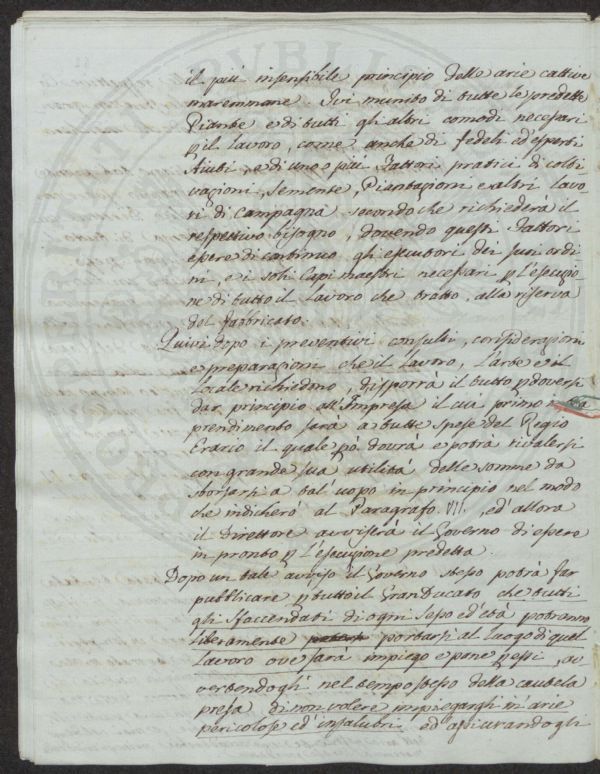 il più insensibile principio delle arie cattive
maremmane. Ivi munito di tutte le predette
Piante e di tutti gli altri comodi necessari
p il lavoro, come anche di fedeli ed esperti
Aiuti, e di uno o più Fattori pratici di colti
vazioni, Semente, Piantazioni e altri lavo
ri di Campagna secondo che richiederà il
respettivo bisogno, dovendo questi Fattori
essere di continuo gli esecutori dei suoi ordi
ni, e i soli Capi maestri necessari p l'esecuzio
ne di tutto il lavoro che tratto, alla riserva
del fabbricato.
Quivi dopo i preventivi consulti, considerazioni
e preparazioni che il Lavoro, l'arte e il
Locale richiedono, disporrà il tutto p doversi
dar principio all'Impresa il cui primo
prendimento sarà a tutte spese del Regio
Erario il quale pò dovrà e potrà rivalersi
con grande sua utilità delle somme da
sborsarsi a tal'uopo in principio nel modo
che indicherò al Paragrafo VII, ed'allora
il Direttore avviserà il Governo di essere
in pronto p l'esecuzione predetta.
Dopo un tale avviso il Governo stesso potrà far
pubblicare p tutto il Gran Ducato che tutti
gli sfaccendati di ogni sesso ed'età potranno
liberamente portarsi al luogo di quel
Lavoro ove sarà impiego e pane p essi, av
vertendogli nel tempo stesso della cautela
presa di non volere impiegargli in arie
pericolose ed'insalubri ed assicurandogli